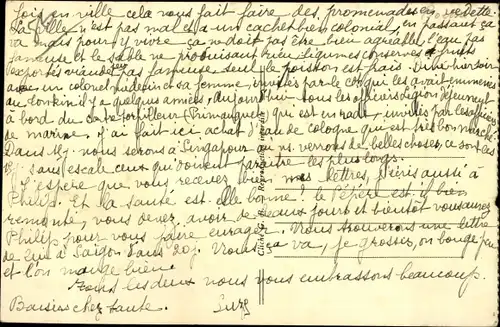 loin en ville cela nous fait faire des promenades en vedette.
La ville n'est pas mal et a un cachet bien colonial, en passant ça
va mais pour y vivre ça ne doit pas être bien agréable, l'eau pas
fameuse et le sable ne produisant rien. Légumes conserves et fruits
exportés viande pas fameuse, seul le poisson est frais. Diné hier soir
avec un colonel médecin et sa femme, invités par le coq qui les avait emmenés
au Tonkin il y a quelques années, aujourd'hui tous les officiers Légion déjeunent
à bord du contre torpilleur (Primauguet) qui est en rade, invités par les officiers
de marine. J'ai fait ici achat d'eau de cologne qui est très bon marché.
Dans 11j. nous serons à Singapour où ns. verrons de belles choses, ce sont les
11j. sans escale ceux qui doivent paraître les plus longs.
J'espère que vous recevez bien mes lettres, j'écris aussi à
Philip. Et la santé est-elle bonne ? le Pépère est il bien
remonté, vous devez avoir de beaux jours et bientôt vous aurez
Philip pour vous faire enrager. Vous trouverons une lettre
de lui à Saïgon dans 20j. Vous ça va, je grossis, on bouge peu
et l'on mange bien.
Tous les deux nous vous embrassons beaucoup.
Baisers chez tante. Suzy